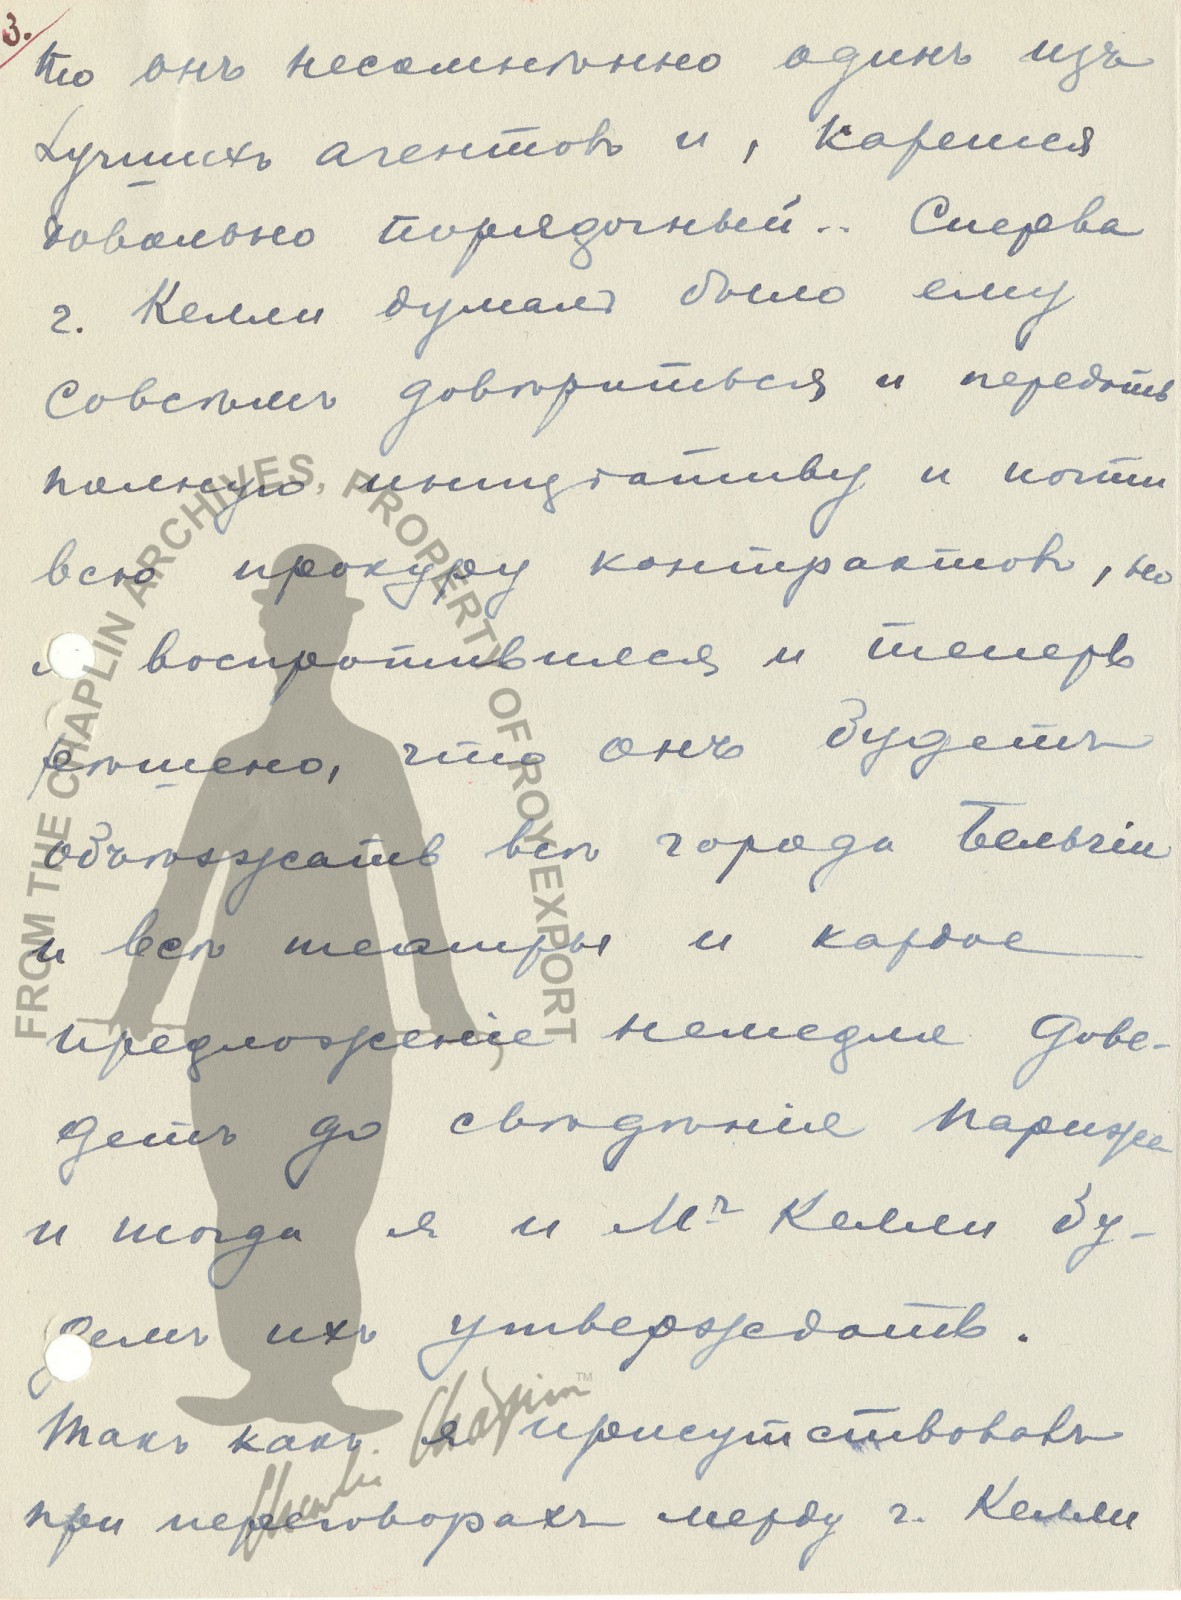 3.
то онъ несомнѣнно одинъ изъ
лучшихъ агентовъ и, кажется
довольно порядочный.. Сперва
г. Келли думалъ было ему
совсѣмъ довѣриться и передать
полную иниціативу и почти
всю прокуру контрактовъ, но
я воспротивился и теперь
рѣшено, что онъ будетъ
объѣзжать всѣ города Бельгіи
и всѣ театры и каждое
предложеніе немедля дове-
детъ до свѣдѣнія Парижа
и тогда я и Мr Келли бу-
демъ ихъ утверждать.
Такъ какъ я присутствовалъ
при переговорахъ между г. Келли
FROM THE CHAPLIN ARCHIVES, PROPERTY OF ROY EXPORT
Charlie Chaplin™